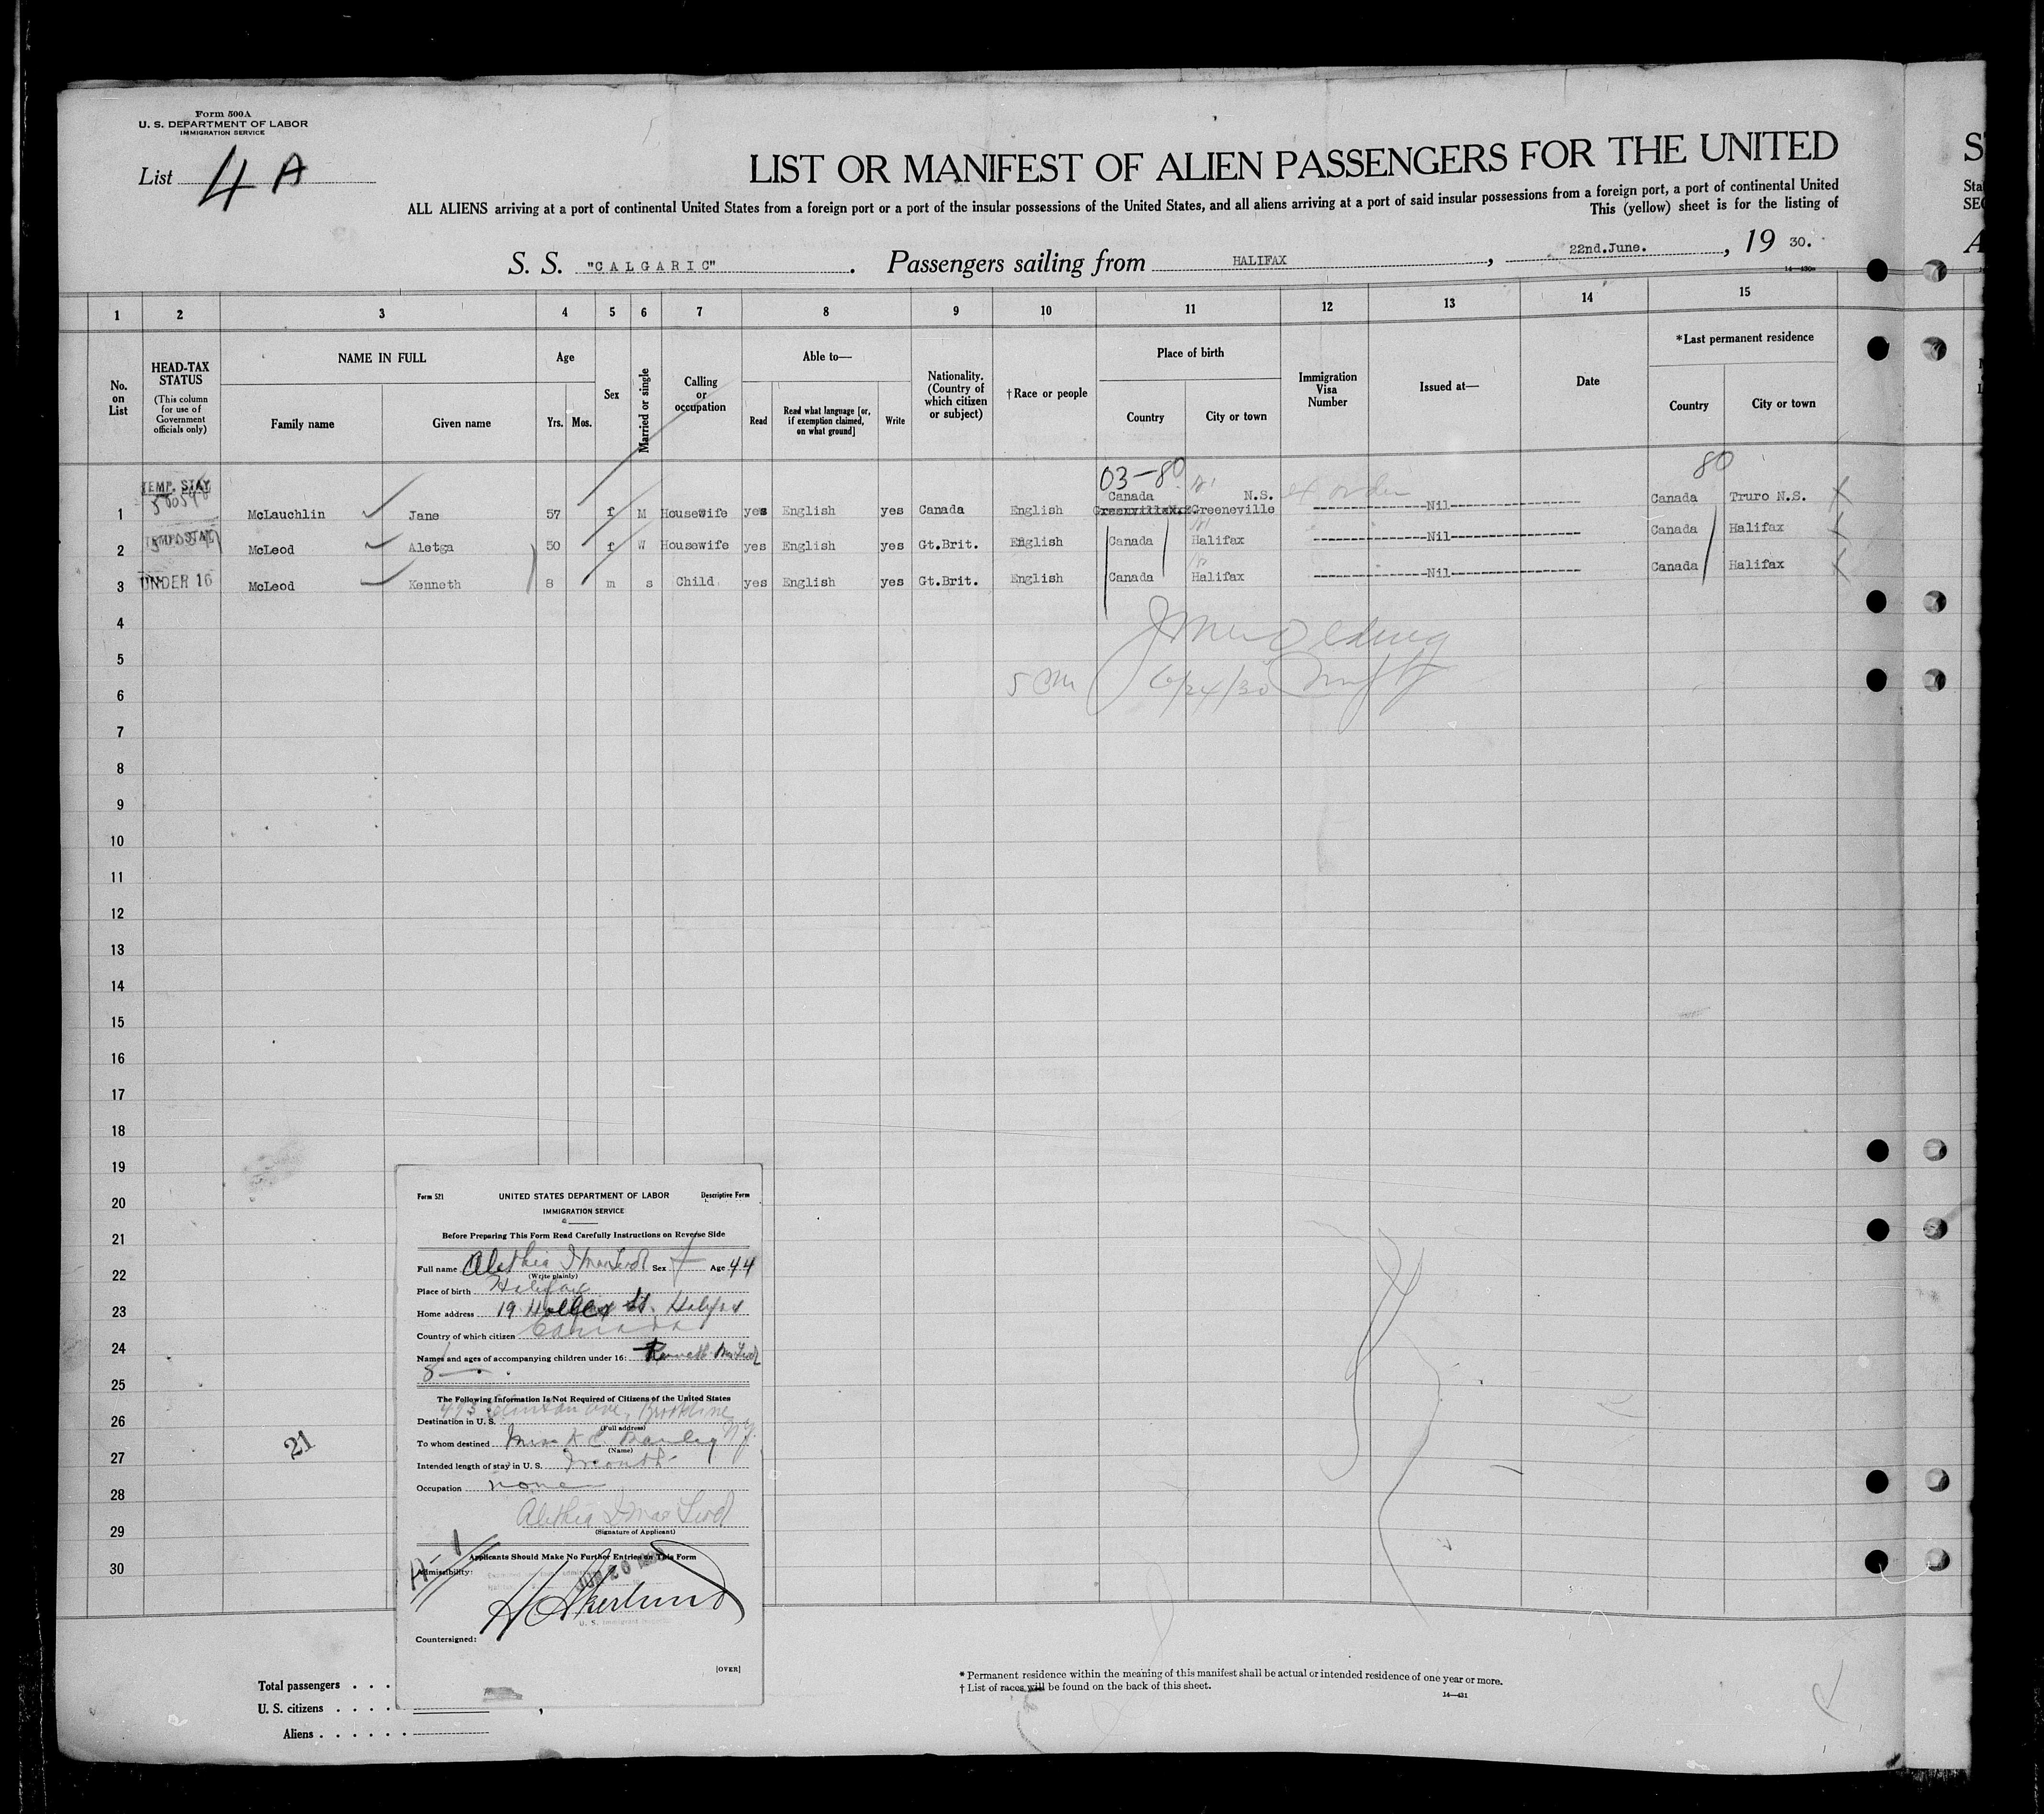 Form 500A
U. S. DEPARTMENT OF LABOR
IMMIGRATION SERVICE
List 4 A
LIST OR MANIFEST OF ALIEN PASSENGERS FOR THE UNITED
ALL ALIENS arriving at a port of continental United States from a foreign port or a port of the insular possessions of the United States, and all aliens arriving at a port of said insular possessions from a foreign port, a port of continental United
This (yellow) sheet is for the listing of
S. S. "CALGARIC". Passengers sailing from HALIFAX, 22nd.June., 19 30.
1 2 3 4 5 6 7 8 9 10 11 12 13 14 15
No. on List
HEAD-TAX STATUS (This column for use of Government officials only)
NAME IN FULL
Family name Given name
Age
Yrs. Mos.
Sex
Married or single
Calling or occupation
Able to—
Read Read what language [or, if exemption claimed, on what ground] Write
Nationality. (Country of which citizen or subject)
†Race or people
Place of birth
Country City or town
Immigration Visa Number
Issued at—
Date
*Last permanent residence
Country City or town
03-80 80
1 TEMP. STAY McLauchlin Jane 57 f M Housewife yes English yes Canada English Canada N.S. Greeneville Nil Canada Truro N.S.
2 McLeod Aletga 50 f W Housewife yes English yes Gt.Brit. English Canada Halifax Nil Canada Halifax
3 UNDER 16 McLeod Kenneth 8 m s Child yes English yes Gt.Brit. English Canada Halifax Nil Canada Halifax
4
5
6 6/24/30
7
8
9
10
11
12
13
14
15
16
17
18
19
20
21
22
23
24
25
26
27
28
29
30
21
Form 521 UNITED STATES DEPARTMENT OF LABOR Descriptive Form
IMMIGRATION SERVICE
Before Preparing This Form Read Carefully Instructions on Reverse Side
Full name Alethia I MacLeod Sex f Age 44
(Write plainly)
Place of birth Halifax
Home address 19 St. Halifax
Country of which citizen Canada
Names and ages of accompanying children under 16: Kenneth MacLeod
8
The Following Information Is Not Required of Citizens of the United States
Destination in U. S.
(Full address)
To whom destined
(Name)
Intended length of stay in U. S.
Occupation none
Alethia I MacLeod
(Signature of Applicant)
Applicants Should Make No Further Entries on This Form
A-1
Admissibility:
U. S. Immigrant
Countersigned:
[OVER]
Total passengers . . .
U. S. citizens . . . .
Aliens . . . . . .
* Permanent residence within the meaning of this manifest shall be actual or intended residence of one year or more.
† List of races will be found on the back of this sheet.